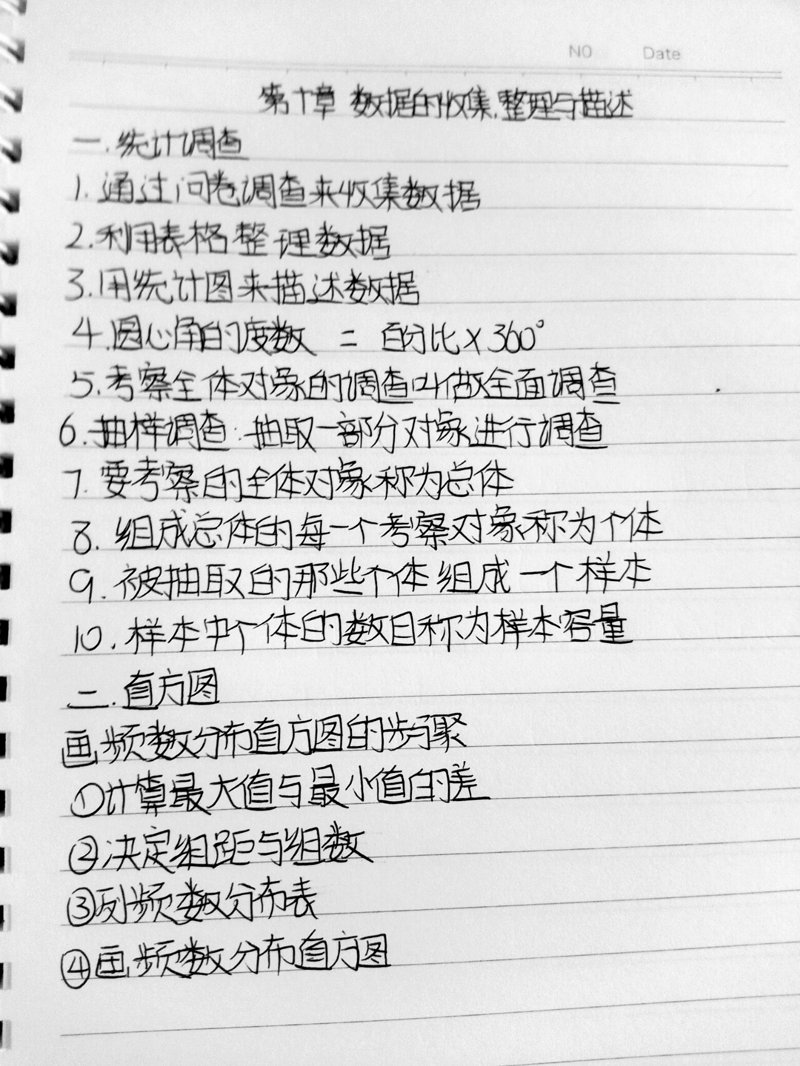 NO Date
第十章 数据的收集、整理与描述
一.统计调查
1.通过问卷调查来收集数据
2.利用表格整理数据
3.用统计图来描述数据
4.圆心角的度数 = 百分比×360°
5.考察全体对象的调查叫做全面调查
6.抽样调查:抽取一部分对象进行调查
7.要考察的全体对象称为总体
8.组成总体的每一个考察对象称为个体
9.被抽取的那些个体组成一个样本
10.样本中个体的数目称为样本容量
二.直方图
画频数分布直方图的步聚
①计算最大值与最小值的差
②决定组距与组数
③列频数分布表
④画频数分布直方图